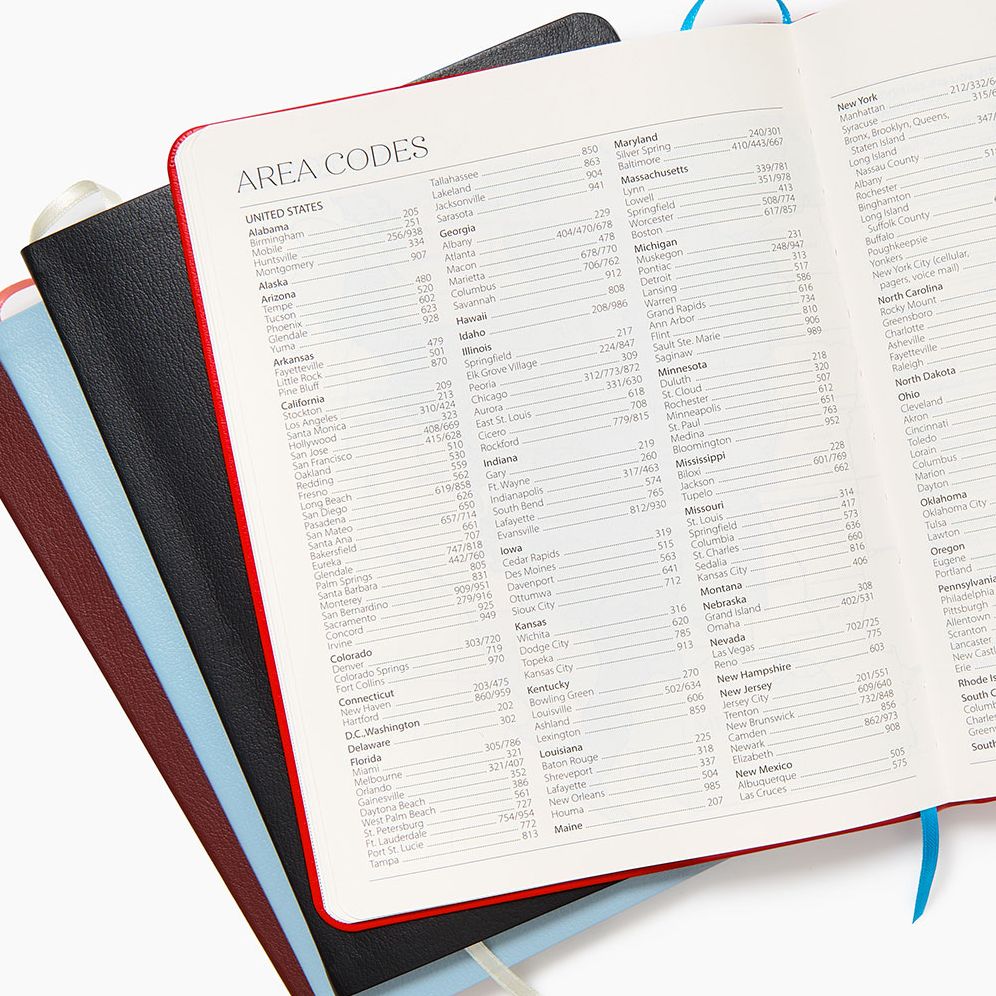 AREA CODES
UNITED STATES
Alabama
Birmingham 205
Mobile 251
Huntsville 256/938
Montgomery 334
Alaska 907
Arizona
Tempe 480
Tucson 520
Phoenix 602
Glendale 623
Yuma 928
Arkansas
Fayetteville 479
Little Rock 501
Pine Bluff 870
California
Stockton 209
Los Angeles 213
Santa Monica 310/424
Hollywood 323
San Jose 408/669
San Francisco 415/628
Oakland 510
Redding 530
Fresno 559
Long Beach 562
San Diego 619/858
Pasadena 626
San Mateo 650
Santa Ana 657/714
Bakersfield 661
Eureka 707
Glendale 747/818
Palm Springs 442/760
Santa Barbara 805
Monterey 831
San Bernardino 909/951
Sacramento 279/916
Concord 925
Irvine 949
Colorado
Denver 303/720
Colorado Springs 719
Fort Collins 970
Connecticut
New Haven 203/475
Hartford 860/959
D.C.,Washington 202
Delaware 302
Florida
Miami 305/786
Melbourne 321
Orlando 321/407
Gainesville 352
Daytona Beach 386
West Palm Beach 561
St. Petersburg 727
Ft. Lauderdale 754/954
Port St. Lucie 772
Tampa 813
Tallahassee 850
Lakeland 863
Jacksonville 904
Sarasota 941
Georgia
Albany 229
Atlanta 404/470/678
Macon 478
Marietta 678/770
Columbus 706/762
Savannah 912
Hawaii 808
Idaho 208/986
Illinois
Springfield 217
Elk Grove Village 224/847
Peoria 309
Chicago 312/773/872
Aurora 331/630
East St. Louis 618
Cicero 708
Rockford 779/815
Indiana
Gary 219
Ft. Wayne 260
Indianapolis 317/463
South Bend 574
Lafayette 765
Evansville 812/930
Iowa
Cedar Rapids 319
Des Moines 515
Davenport 563
Ottumwa 641
Sioux City 712
Kansas
Wichita 316
Dodge City 620
Topeka 785
Kansas City 913
Kentucky
Bowling Green 270
Louisville 502/634
Ashland 606
Lexington 859
Louisiana
Baton Rouge 225
Shreveport 318
Lafayette 337
New Orleans 504
Houma 985
Maine 207
Maryland
Silver Spring 240/301
Baltimore 410/443/667
Massachusetts
Lynn 339/781
Lowell 351/978
Springfield 413
Worcester 508/774
Boston 617/857
Michigan
Muskegon 231
Pontiac 248/947
Detroit 313
Lansing 517
Warren 586
Grand Rapids 616
Ann Arbor 734
Flint 810
Sault Ste. Marie 906
Saginaw 989
Minnesota
Duluth 218
St. Cloud 320
Rochester 507
Minneapolis 612
St. Paul 651
Medina 763
Bloomington 952
Mississippi
Biloxi 228
Jackson 601/769
Tupelo 662
Missouri
St. Louis 314
Springfield 417
Columbia 573
St. Charles 636
Sedalia 660
Kansas City 816
Montana 406
Nebraska
Grand Island 308
Omaha 402/531
Nevada
Las Vegas 702/725
Reno 775
New Hampshire 603
New Jersey
Jersey City 201/551
Trenton 609/640
New Brunswick 732/848
Camden 856
Newark 862/973
Elizabeth 908
New Mexico
Albuquerque 505
Las Cruces 575
New York
Manhattan 212/332/6
Syracuse 315/6
Bronx, Brooklyn, Queens,
Staten Island 347/
Long Island
Nassau County 51
Albany
Rochester
Binghamton
Long Island
Suffolk County
Buffalo
Poughkeepsie
Yonkers
New York City (cellular,
pagers, voice mail)
North Carolina
Rocky Mount
Greensboro
Charlotte
Asheville
Fayetteville
Raleigh
North Dakota
Ohio
Cleveland
Akron
Cincinnati
Toledo
Lorain
Columbus
Marion
Dayton
Oklahoma
Oklahoma City
Tulsa
Lawton
Oregon
Eugene
Portland
Pennsylvani
Philadelphia
Pittsburgh
Allentown
Scranton
Lancaster
New Castl
Erie
Rhode Isl
South C
Charles
Green
South